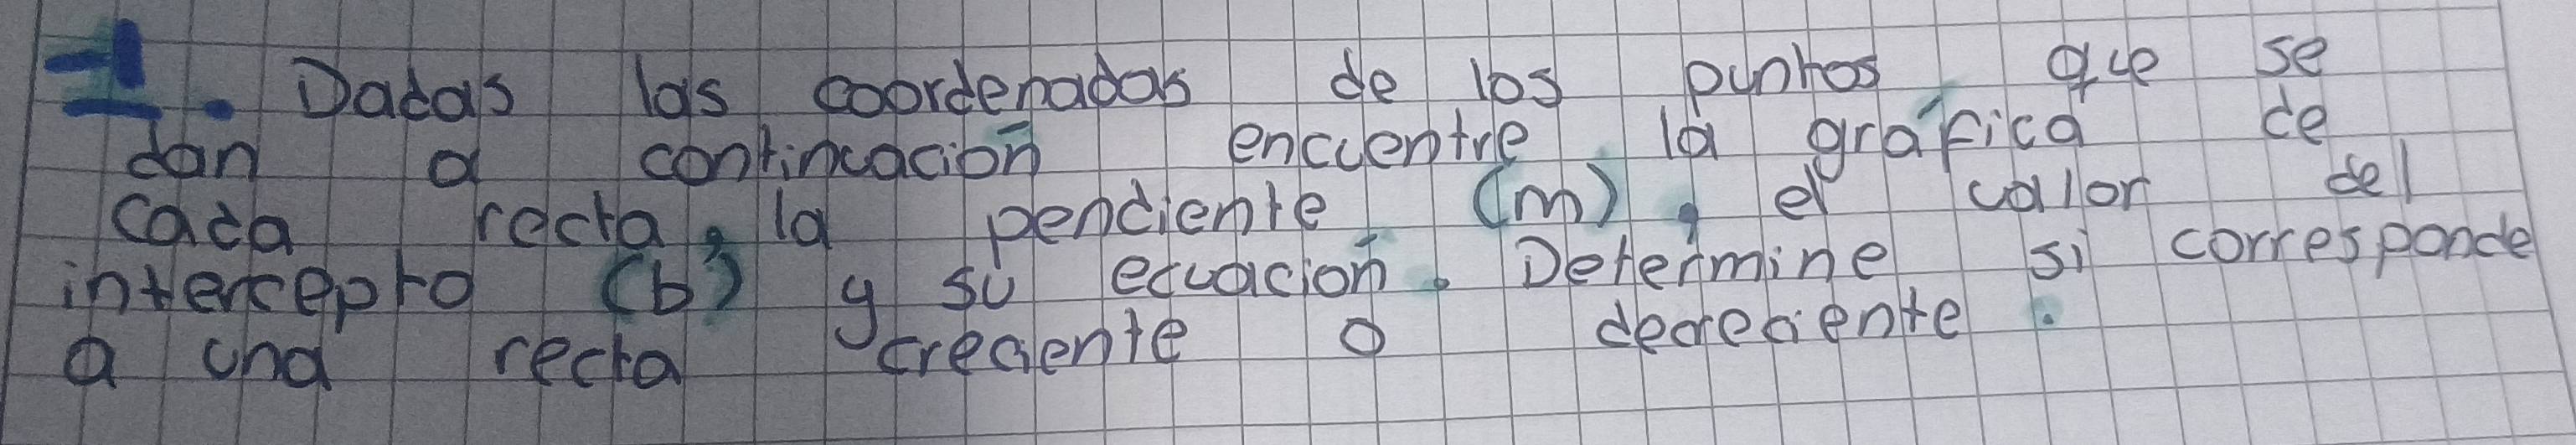 1. Dadas las coordenadas de los puntos que se
dan a continuación encuentre la gráfica de
cada recta, la pendiente (m), el valor del
intercepto (b) y su ecuación. Determine si corresponde
a una recta creciente o decreciente.